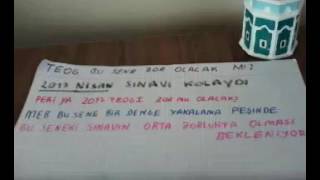 TEOG BU SENE ZOR OLACAK MI?
2017 NİSAN SINAVI KOLAYDI
PEKİ YA 2017 TEOG1 ZOR MU OLACAK?
MEB BU SENE BİR DENGE YAKALAMA PEŞİNDE
BU SENEKİ SINAVIN ORTA ZORLUKTA OLMASI
BEKLENİYOR